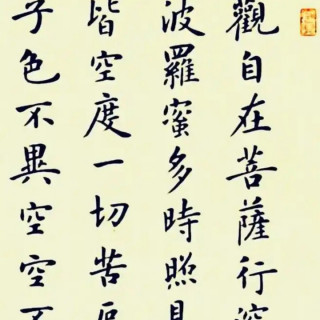 觀自在菩薩行深
波羅蜜多時照見
皆空度一切苦厄
子色不異空空不